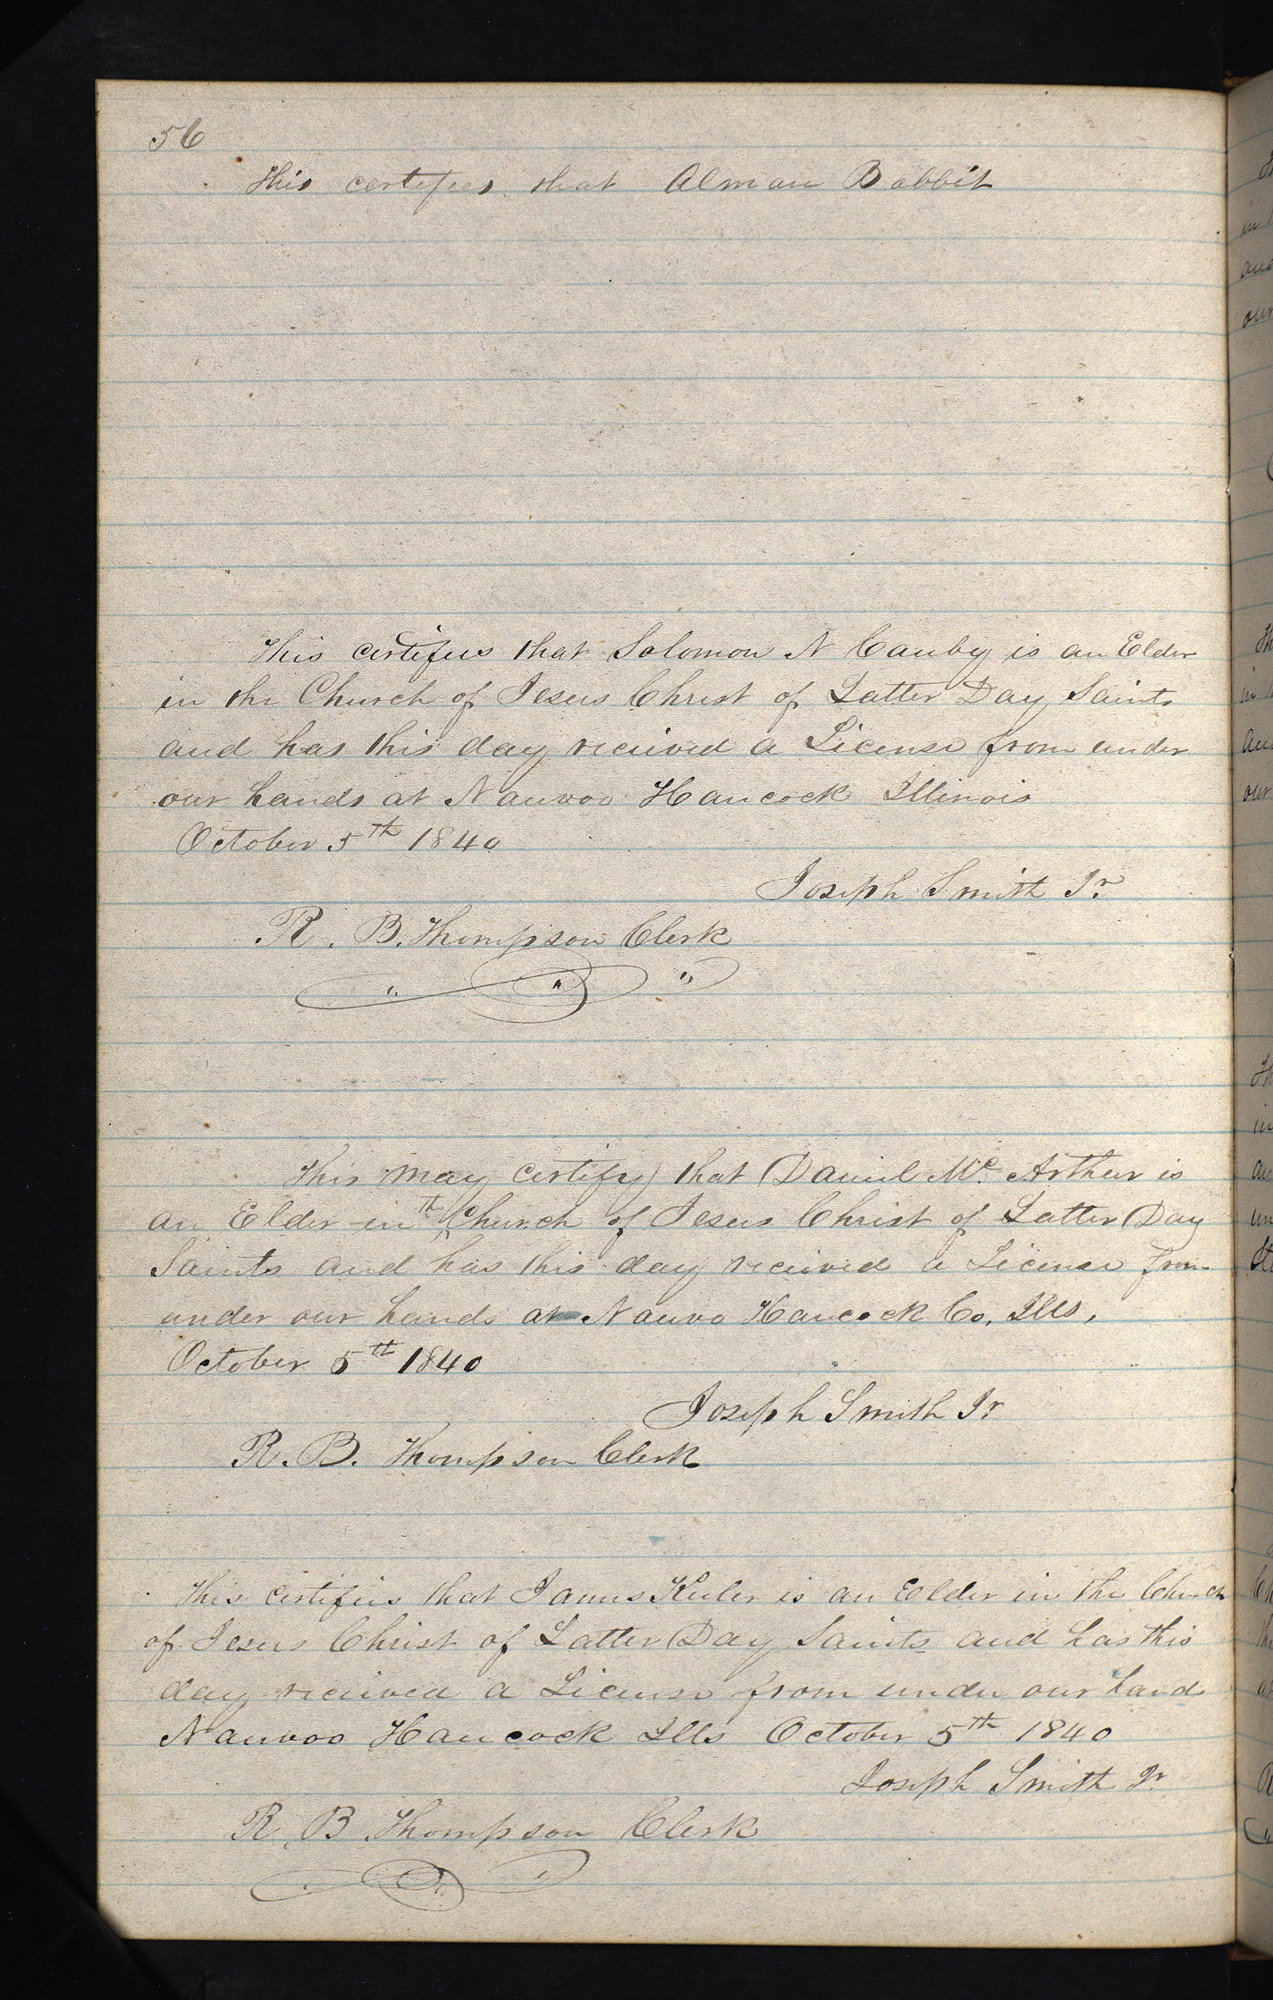 56
This certifies that Alman Babbit
This certifies that Solomon N Canby is an Elder
in the Church of Jesus Christ of Latter Day Saints
and has this day received a License from under
our hands at Nauvoo Hancock Illinois
October 5th 1840
Joseph Smith Jr.
R. B. Thompson Clerk
This may certify that Daniel Mc Arthur is
an Elder in th Church of Jesus Christ of Latter Day
Saints and has this day received a License from
under our hands at Nauvo Hancock Co, Ills,
October 5th 1840
Joseph Smith Jr
R. B. Thompson Clerk
This certifies that James Keeler is an Elder in the Church
of Jesus Christ of Latter Day Saints and has this
day received a License from under our hand
Nauvoo Hancock Ills October 5th 1840
Joseph Smith Jr
R. B Thompson Clerk